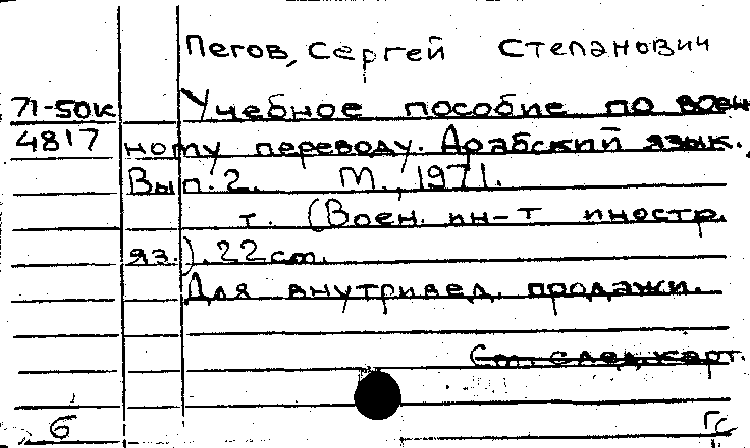 Пегов, Сергей Степанович
71-50к Учебное пособие по воен
4817 ному переводу. Арабский язык.
Вып. 2. М., 1971.
т. (Воен. ин-т иностр.
яз.). 22 см.
Для внутривед. продажи.
См. след. карт.
б Гс